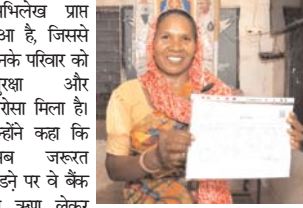 भिलेख प्राप्त
आ है, जिससे
नके परिवार को
रक्षा और
रोसा मिला है।
न्होंने कहा कि
ब जरूरत
डने पर वे बैंक
ऋण लेकर